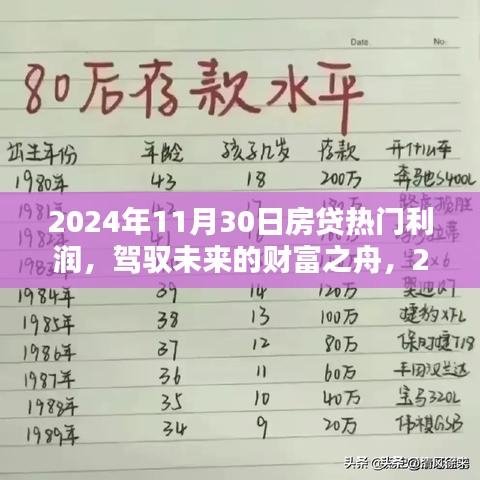 Date.
No.
80后存款水平
出生年份 年龄 孩子几岁 存款 开什么车
1980年 43 18 200万 奔驰S400L
2024年11月30日房贷热门利
润，驾驭未来的财富之舟，2
年 39 14 120万 奥迪Q7
1985年 38 13 100万 捷豹XFL
1986年 37 12 80万 保时捷718
1987年 36 11 60万 丰田汉兰达
1988年 35 10 40万 宝马320L
1989年 34 9 20万 传祺GS8
头条 @清风徐来